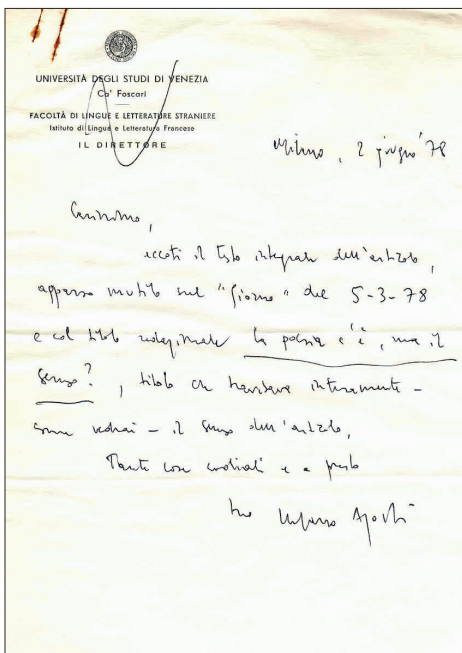 UNIVERSITÀ DEGLI STUDI DI VENEZIA
Ca' Foscari
FACOLTÀ DI LINGUE E LETTERATURE STRANIERE
Istituto di Lingue e Letteratura Francese
IL DIRETTORE
Milano, 2 giugno '78
Carissimo,
eccoti il testo integrale dell'articolo,
apparso mutilo sul "Giorno" del 5-3-78
e col titolo redazionale la poesia c'è, ma il
senso?, titolo che travisava interamente –
come vedrai – il senso dell'articolo.
Tante cose cordiali e a presto
tuo Stefano Agosti